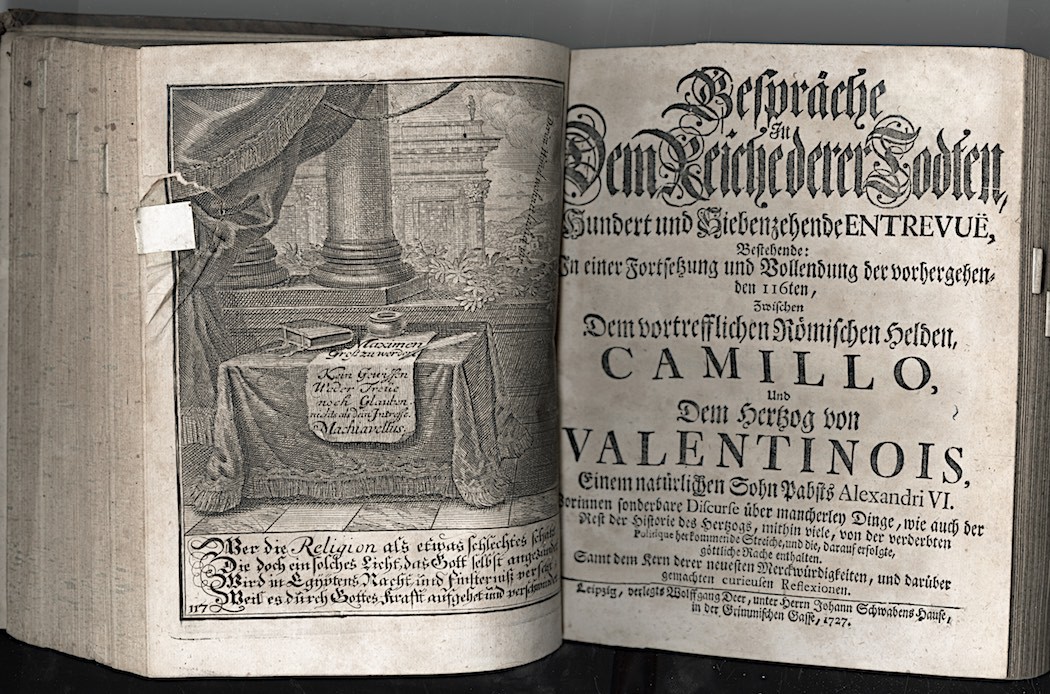 Maximen
Groß zu werden
Kein Gewissen
Weder Treue
noch Glauben
nichts als dein Intresse.
Machiavellus.
Wer die Religion als etwas schlechtes schätzt
Die doch ein solches Licht, das Gott selbst angezündet
Wird in Egyptens Nacht und Finsterniß versetzt
Weil es durch Gottes Krafft aufgehet und verschwindet
117
Gespräche
In
Dem Reiche derer Todten,
Hundert und Siebenzehende ENTREVUË,
Bestehende:
In einer Fortsetzung und Vollendung der vorhergehen-
den 116ten,
Zwischen
Dem vortrefflichen Römischen Helden,
CAMILLO,
Und
Dem Hertzog von
VALENTINOIS,
Einem natürlichen Sohn Pabsts Alexandri VI.
Worinnen sonderbare Discurse über mancherley Dinge, wie auch der
Rest der Historie des Hertzogs, mithin viele, von der verderbten
Politique herkommende Streiche, und die, darauf erfolgte,
göttliche Rache enthalten.
Samt dem Kern derer neuesten Merckwürdigkeiten, und darüber
gemachten curieusen Reflexionen.
Leipzig, verlegts Wolffgang Deer, unter Herrn Johann Schwabens Hause,
in der Grimmischen Gasse, 1727.